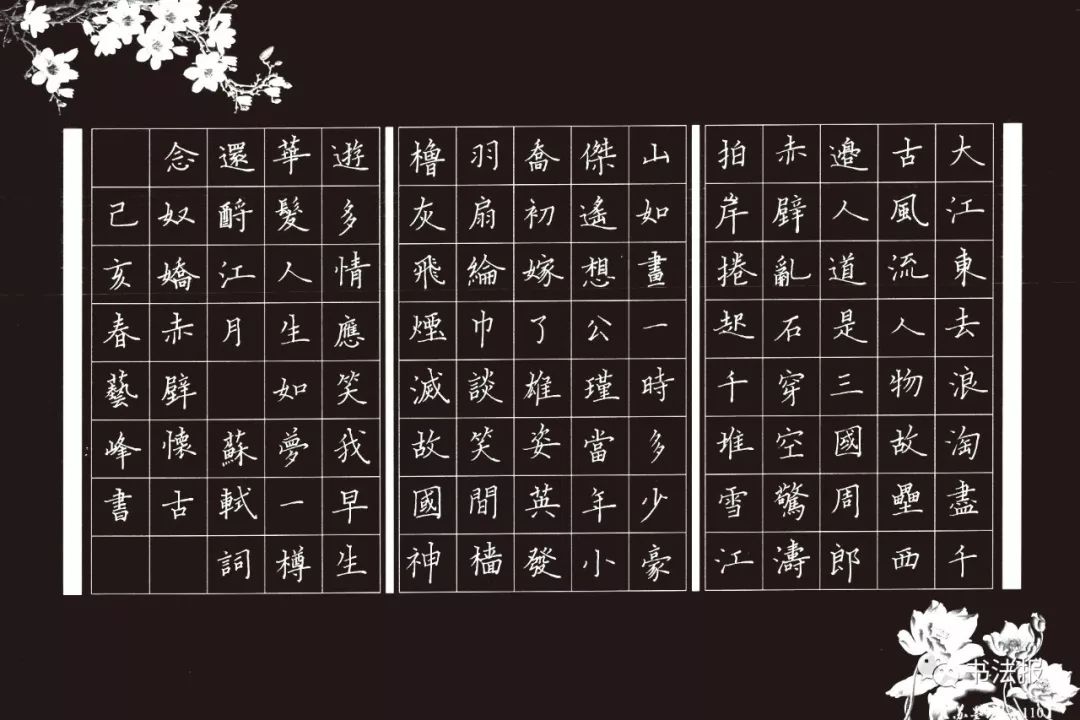 大江東去浪淘盡千
古風流人物故壘西
邊人道是三國周郎
赤壁亂石穿空驚濤
拍岸捲起千堆雪江
山如畫一時多少豪
傑遙想公瑾當年小
喬初嫁了雄姿英發
羽扇綸巾談笑間檣
櫓灰飛煙滅故國神
遊多情應笑我早生
華髮人生如夢一樽
還酹江月 蘇軾詞
念奴嬌赤壁懷古
己亥春藝峰書
书法报